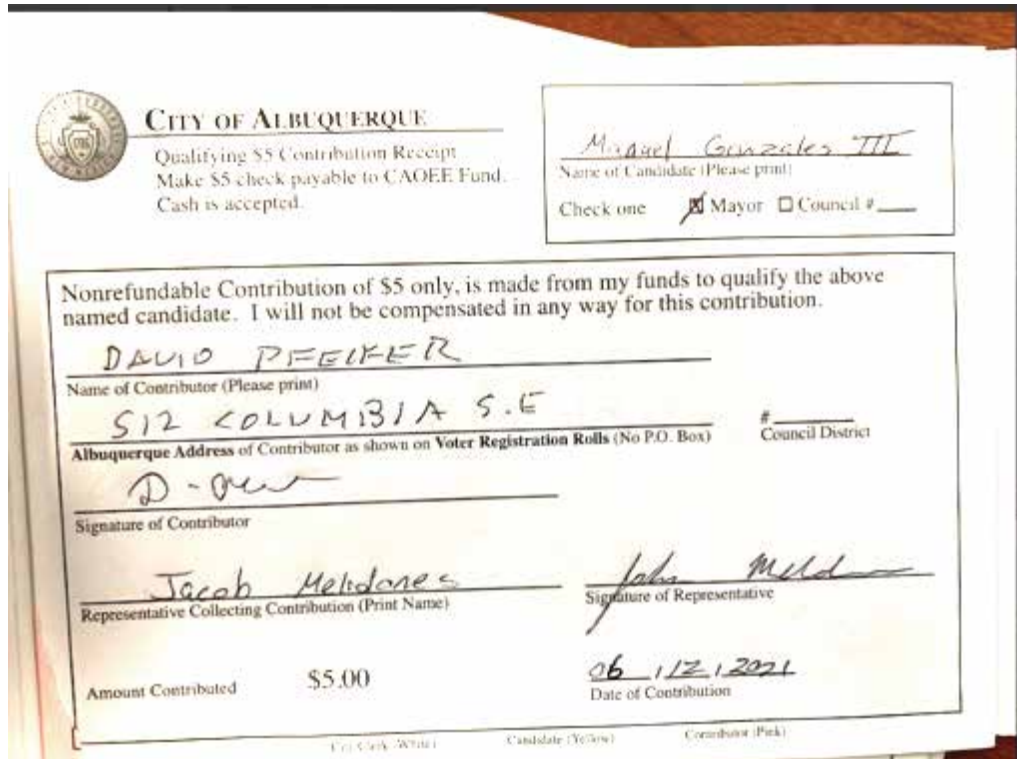 CITY OF ALBUQUERQUE
Qualifying $5 Contribution Receipt
Make $5 check payable to CAOEE Fund.
Cash is accepted.
Miguel Gonzales III
Name of Candidate (Please print)
Check one ☒ Mayor ☐ Council #
Nonrefundable Contribution of $5 only, is made from my funds to qualify the above
named candidate. I will not be compensated in any way for this contribution.
DAVID PFEIFER
Name of Contributor (Please print)
512 COLUMBIA S.E
Albuquerque Address of Contributor as shown on Voter Registration Rolls (No P.O. Box)
#
Council District
Signature of Contributor
Jacob Melidones
Representative Collecting Contribution (Print Name)
Signature of Representative
Amount Contributed $5.00
06/12/2021
Date of Contribution
City Clerk (White) Candidate (Yellow) Contributor (Pink)